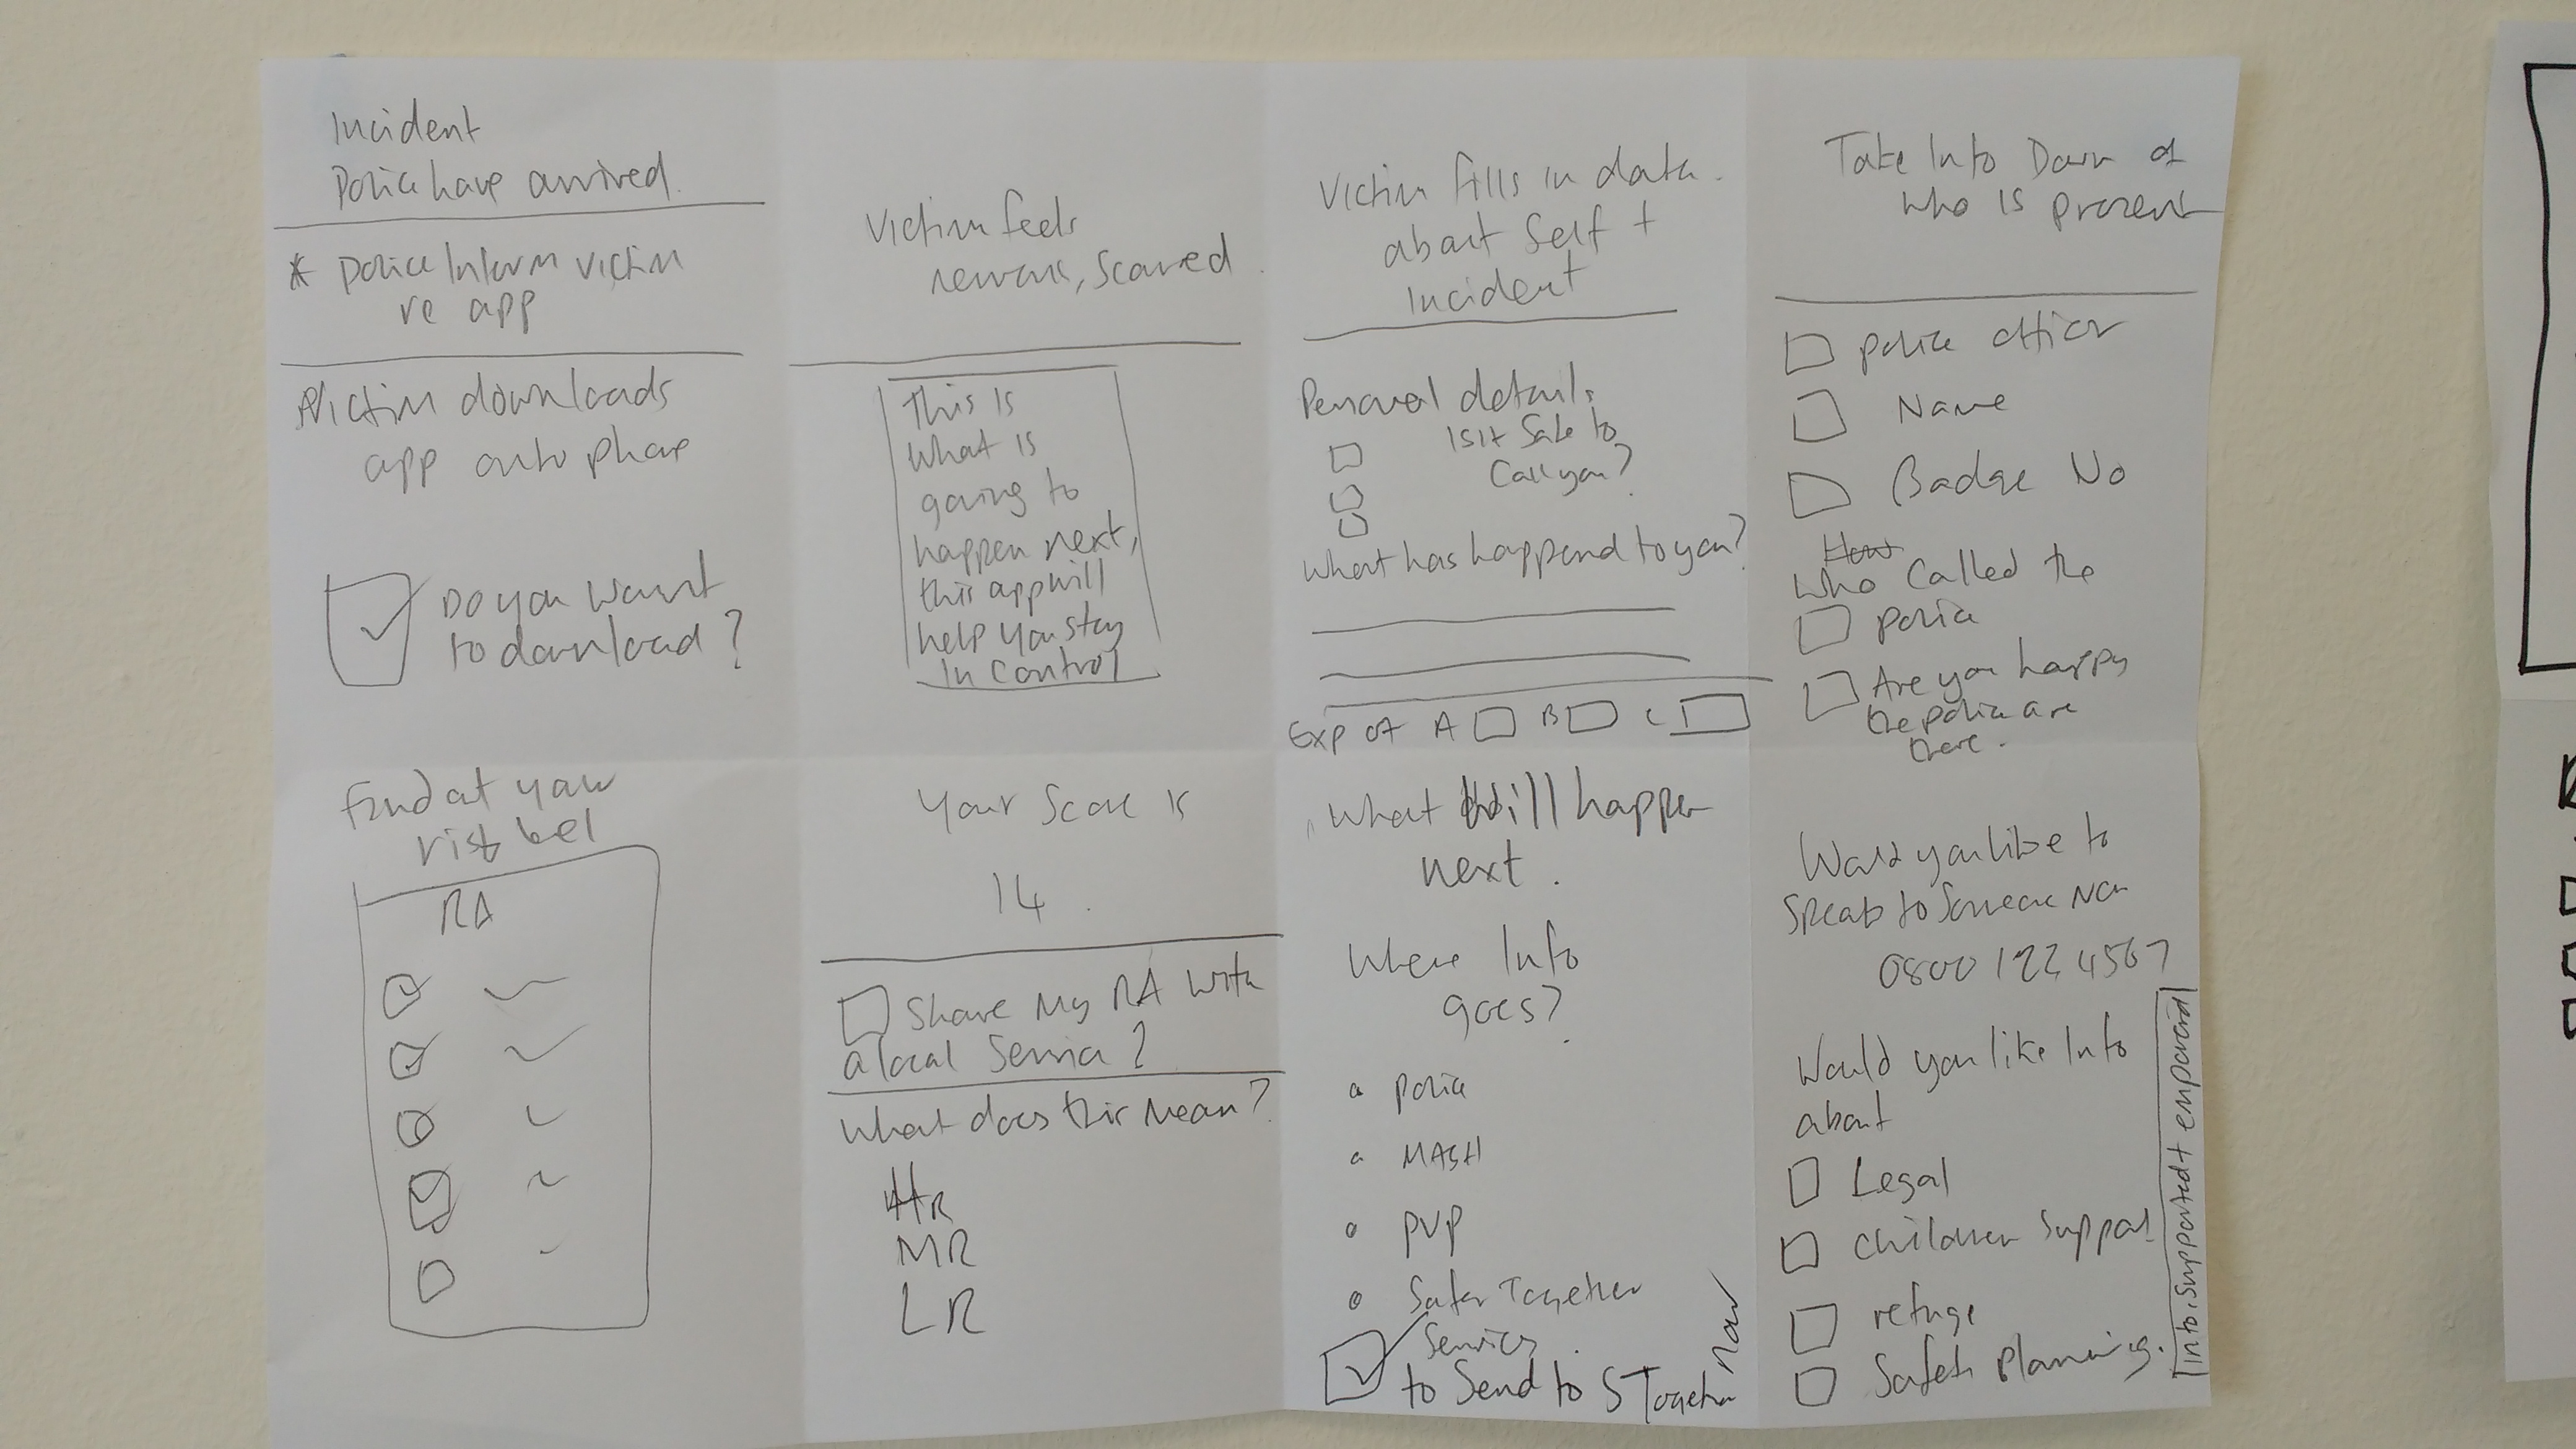 Incident
Police have arrived.
* Police Inform victim
re app
Victim downloads
app onto phone
Do you want
to download?
Victim feels
nervous, Scared.
This is
what is
going to
happen next,
this app will
help you stay
in Control
Victim fills in data.
about Self +
Incident
Personal details
Is it Safe to
Call you?
What has happend to you?
Exp of A B C
Take Info Down of
who is present
Police officer
Name
Badge No
How
Who Called the
Police
Are you happy
the police are
there.
Find out your
risk level
RA
Your Score is
14.
Share My RA with
a local Service?
What does this Mean?
HR
MR
LR
What will happen
next.
Where Info
goes?
Police
MASH
PVP
Safer Together
Services
to Send to S Together
Now
Would you like to
Speak to Someone Now
0800 122 4567
Would you like Info
about
Legal
Children Support
refuge
Safety Planning.
Info, Supported + empowered